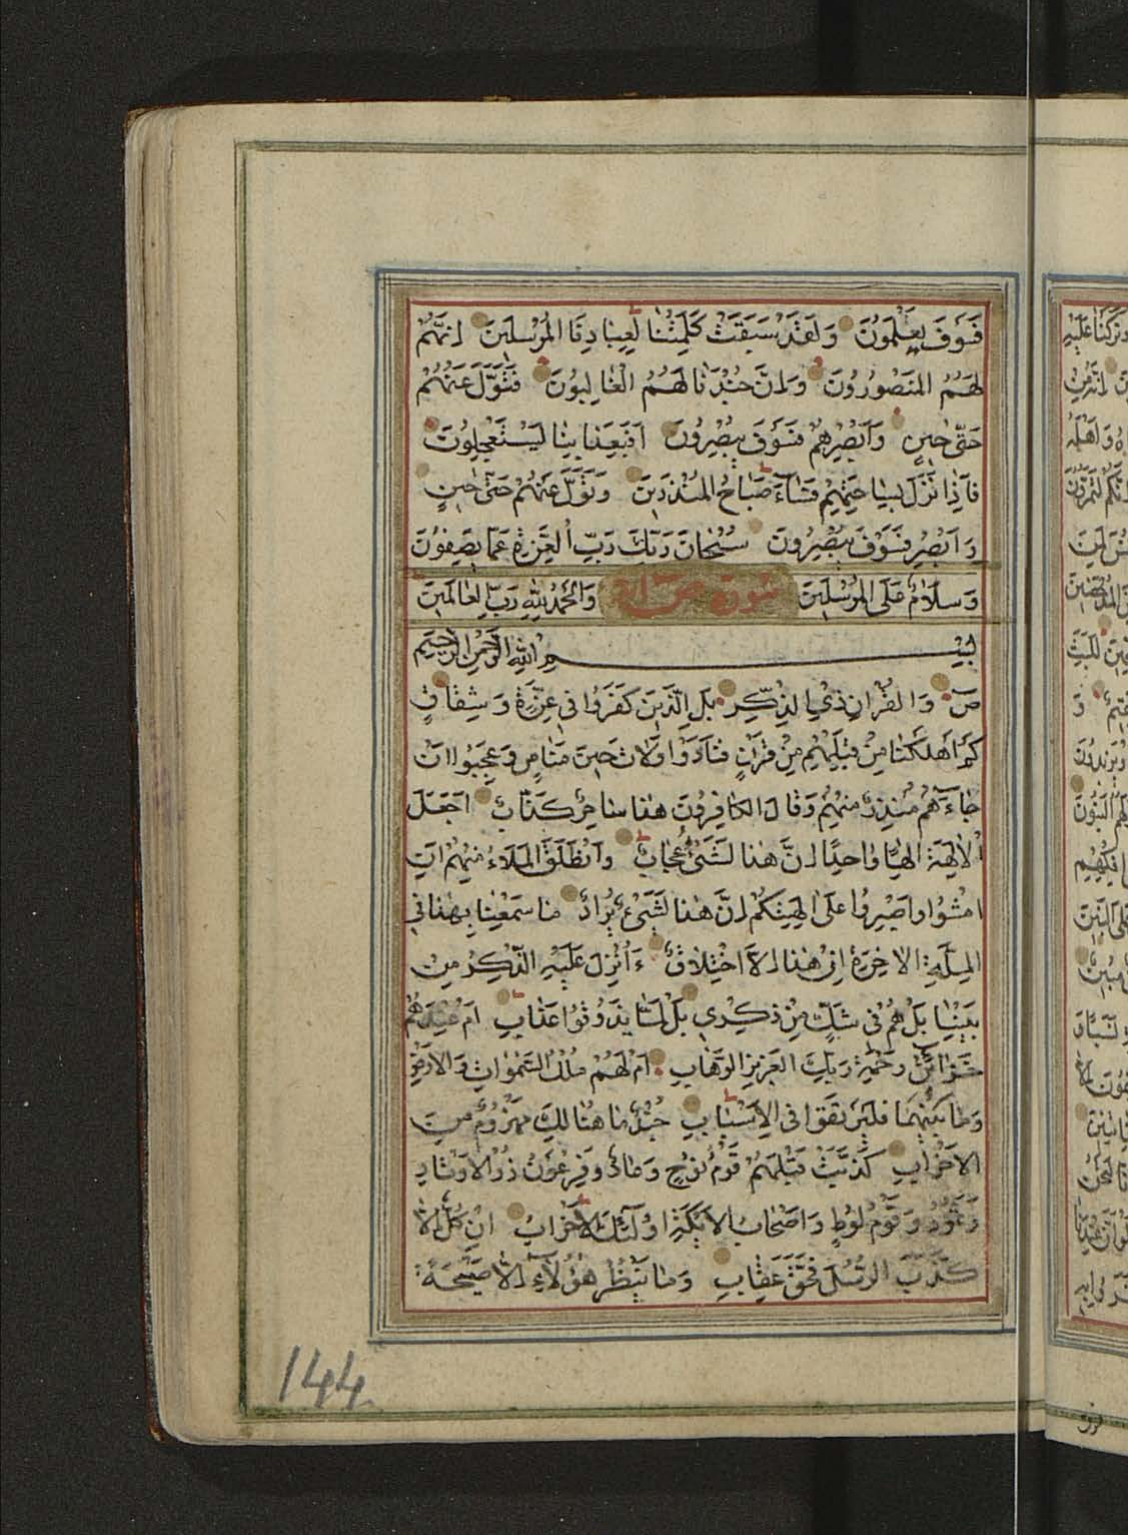 فَسَوْفَ يَعْلَمُونَ وَلَقَدْ سَبَقَتْ كَلِمَتُنَا لِعِبَادِنَا الْمُرْسَلِينَ اِنَّهُمْ
لَهُمُ الْمَنْصُورُونَ وَاِنَّ جُنْدَنَا لَهُمُ الْغَالِبُونَ فَتَوَلَّ عَنْهُمْ
حَتّٰى حِينٍ وَاَبْصِرْهُمْ فَسَوْفَ يُبْصِرُونَ اَفَبِعَذَابِنَا يَسْتَعْجِلُونَ
فَاِذَا نَزَلَ بِسَاحَتِهِمْ فَسَاۤءَ صَبَاحُ الْمُنْذَرِينَ وَتَوَلَّ عَنْهُمْ حَتّٰى حِينٍ
وَاَبْصِرْ فَسَوْفَ يُبْصِرُونَ سُبْحَانَ رَبِّكَ رَبِّ الْعِزَّةِ عَمَّا يَصِفُونَ
وَسَلَامٌ عَلَى الْمُرْسَلِينَ سورة ص وَالْحَمْدُ لِلّٰهِ رَبِّ الْعَالَمِينَ
بِسْمِ اللّٰهِ الرَّحْمٰنِ الرَّحِيمِ
صۤ وَالْقُرْاٰنِ ذِي الذِّكْرِ بَلِ الَّذِينَ كَفَرُوا فِي عِزَّةٍ وَشِقَاقٍ
كَمْ اَهْلَكْنَا مِنْ قَبْلِهِمْ مِنْ قَرْنٍ فَنَادَوْا وَلَاتَ حِينَ مَنَاصٍ وَعَجِبُوا اَنْ
جَاۤءَهُمْ مُنْذِرٌ مِنْهُمْ وَقَالَ الْكَافِرُونَ هٰذَا سَاحِرٌ كَذَّابٌ اَجَعَلَ
الْاٰلِهَةَ اِلٰهًا وَاحِدًا اِنَّ هٰذَا لَشَيْءٌ عُجَابٌ وَانْطَلَقَ الْمَلَاُ مِنْهُمْ اَنِ
امْشُوا وَاصْبِرُوا عَلٰى اٰلِهَتِكُمْ اِنَّ هٰذَا لَشَيْءٌ يُرَادُ مَا سَمِعْنَا بِهٰذَا فِي
الْمِلَّةِ الْاٰخِرَةِ اِنْ هٰذَا اِلَّا اخْتِلَاقٌ ءَاُنْزِلَ عَلَيْهِ الذِّكْرُ مِنْ
بَيْنِنَا بَلْ هُمْ فِي شَكٍّ مِنْ ذِكْرِي بَلْ لَمَّا يَذُوقُوا عَذَابِ اَمْ عِنْدَهُمْ
خَزَاۤئِنُ رَحْمَةِ رَبِّكَ الْعَزِيزِ الْوَهَّابِ اَمْ لَهُمْ مُلْكُ السَّمٰوَاتِ وَالْاَرْضِ
وَمَا بَيْنَهُمَا فَلْيَرْتَقُوا فِي الْاَسْبَابِ جُنْدٌ مَا هُنَالِكَ مَهْزُومٌ مِنَ
الْاَحْزَابِ كَذَّبَتْ قَبْلَهُمْ قَوْمُ نُوحٍ وَعَادٌ وَفِرْعَوْنُ ذُو الْاَوْتَادِ
وَثَمُودُ وَقَوْمُ لُوطٍ وَاَصْحَابُ الْاَيْكَةِ اُولٰۤئِكَ الْاَحْزَابُ اِنْ كُلٌّ اِلَّا
كَذَّبَ الرُّسُلَ فَحَقَّ عِقَابِ وَمَا يَنْظُرُ هٰۤؤُلَاۤءِ اِلَّا صَيْحَةً
144